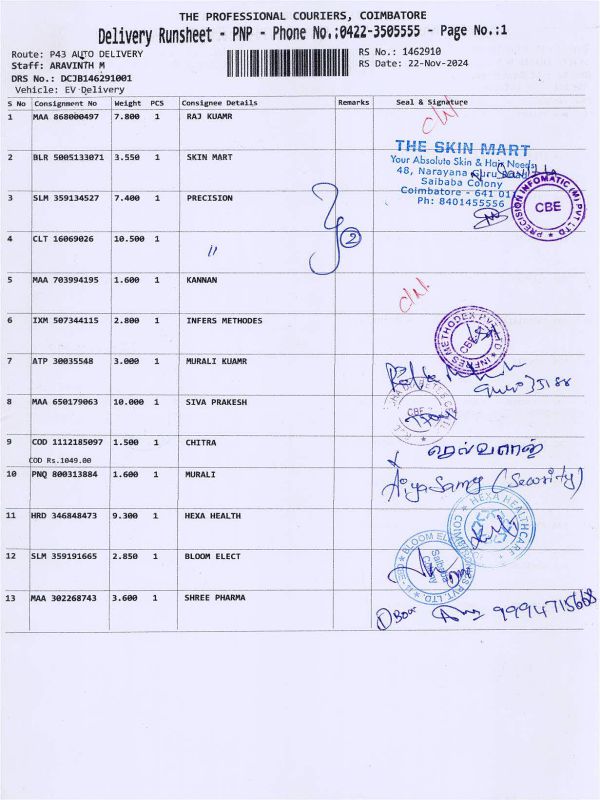 THE PROFESSIONAL COURIERS, COIMBATORE
Delivery Runsheet - PNP - Phone No.:0422-3505555 - Page No.:1
Route: P43 AUTO DELIVERY RS No.: 1462910
Staff: ARAVINTH M RS Date: 22-Nov-2024
DRS No.: DCJB146291001
Vehicle: EV Delivery
S No Consignment No Weight PCS Consignee Details Remarks Seal & Signature
1 MAA 868000497 7.800 1 RAJ KUAMR
THE SKIN MART
Your Absolute Skin & Hair Needs
2 BLR 5005133071 3.550 1 SKIN MART
48, Narayana Guru
Saibaba Colony
Coimbatore - 641 011
Ph: 8401455556
3 SLM 359134527 7.400 1 PRECISION
PRECISION INFOMATIC (M) PVT LTD
CBE
4 CLT 16069026 10.500 1 〃 2
5 MAA 703994195 1.600 1 KANNAN
6 IXM 507344115 2.800 1 INFERS METHODES
CBE
7 ATP 30035548 3.000 1 MURALI KUAMR
8 MAA 650179063 10.000 1 SIVA PRAKESH
CBE
9 COD 1112185097 1.500 1 CHITRA
COD Rs.1049.00
செல்வராஜ்
10 PNQ 800313884 1.600 1 MURALI
AiyaSamy (Security)
11 HRD 346848473 9.300 1 HEXA HEALTH
HEXA HEALTHCARE
12 SLM 359191665 2.850 1 BLOOM ELECT
Saibaba
Colony
13 MAA 302268743 3.600 1 SHREE PHARMA
9994715668